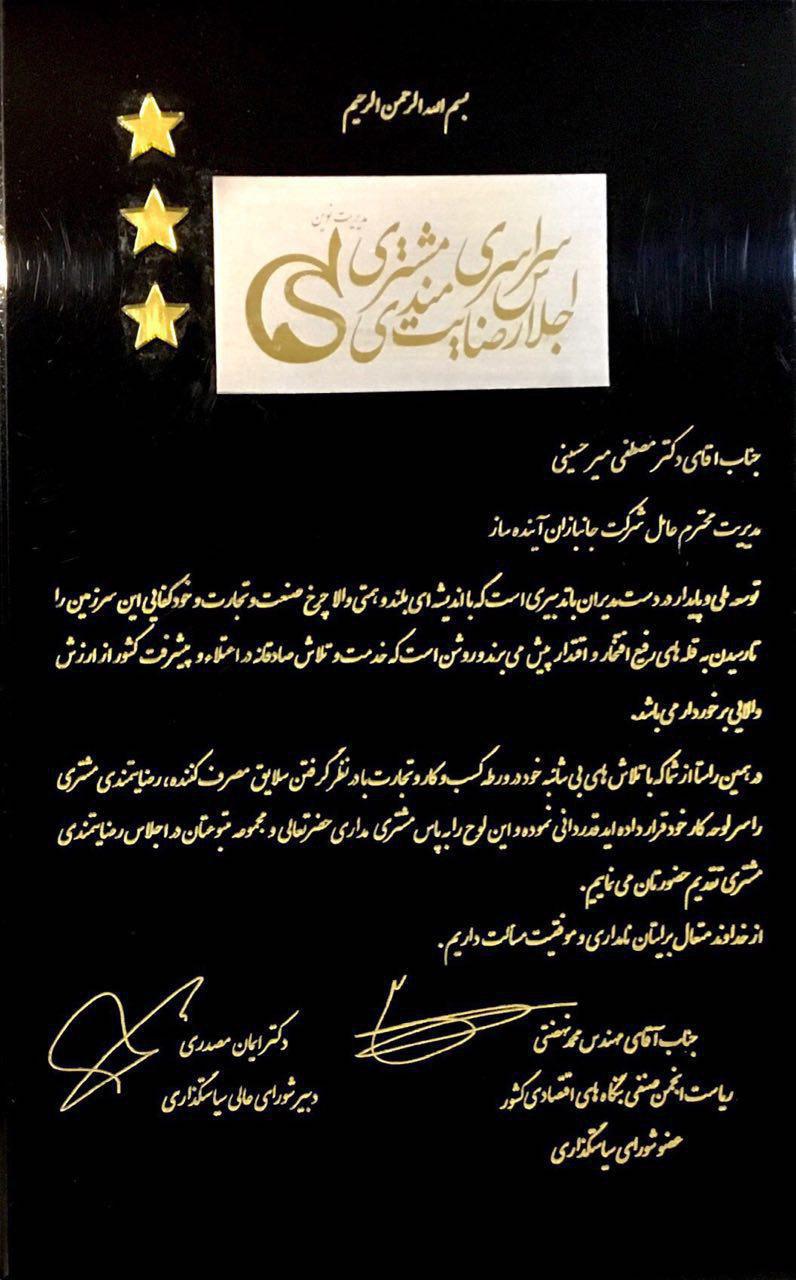 بسم الله الرحمن الرحیم
مدیریت نوین
اجلاس سراسری
رضایت مندی مشتری
جناب اقای دکتر مصطفی میرحسینی
مدیریت محترم عامل شرکت جانبازان آینده ساز
توسعه ملی و پایدار در دست مدیران باتدبیری است که با اندیشه ای بلند و همتی والا چرخ صنعت و تجارت و خودکفایی این سرزمین را
تا رسیدن به قله های رفیع افتخار و اقتدار پیش می برند و روشن است که خدمت و تلاش صادقانه در اعتلاء و پیشرفت کشور از ارزش
والایی برخوردار می باشد.
در همین راستا از شما که با تلاش های بی شائبه خود در ورطه کسب و کار و تجارت با در نظر گرفتن سلایق مصرف کننده، رضایتمندی مشتری
را سر لوحه کار خود قرار داده اید قدردانی نموده و این لوح را به پاس مشتری مداری حضرتعالی و مجموعه متبوعتان در اجلاس رضایتمندی
مشتری تقدیم حضورتان می نماییم.
از خداوند متعال برایتان نامداری و موفقیت مسألت داریم.
جناب آقای مهندس محمد نهضتی
ریاست انجمن صنفی بنگاه های اقتصادی کشور
عضو شورای سیاستگذاری
دکتر ایمان مصدری
دبیر شورای عالی سیاستگذاری